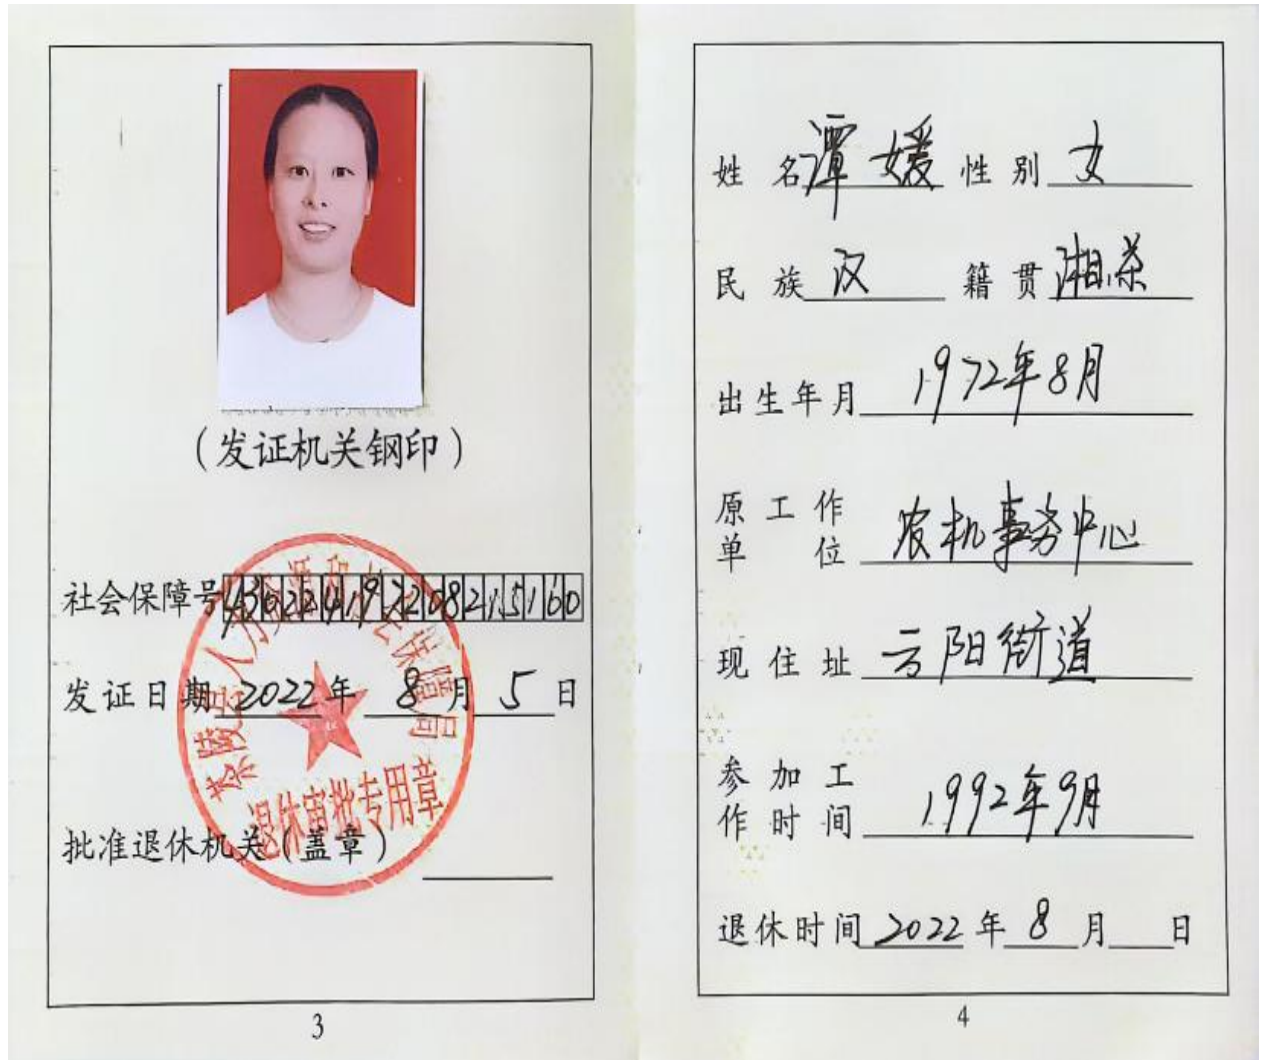 （发证机关钢印）
社会保障号430224197208215160
发证日期2022年8月5日
批准退休机关（盖章）
茶陵县人力资源和社会保障局
退休审批专用章
3
姓名谭媛性别女
民族汉籍贯湘.茶
出生年月1972年8月
原工作
单位农机事务中心
现住址云阳街道
参加工
作时间1992年9月
退休时间2022年8月日
4